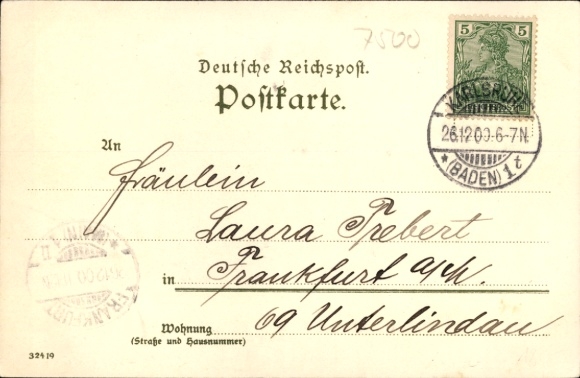 7500
5 5
Deutsche Reichspost.
Postkarte.
KARLSRUHE
26.12 00.6-7N.
* (BADEN) 1t
An
Fräulein
Laura Trebert
in Frankfurt a/M.
69 Unterlindau
Wohnung
(Straße und Hausnummer)
FRANKFURT
32419